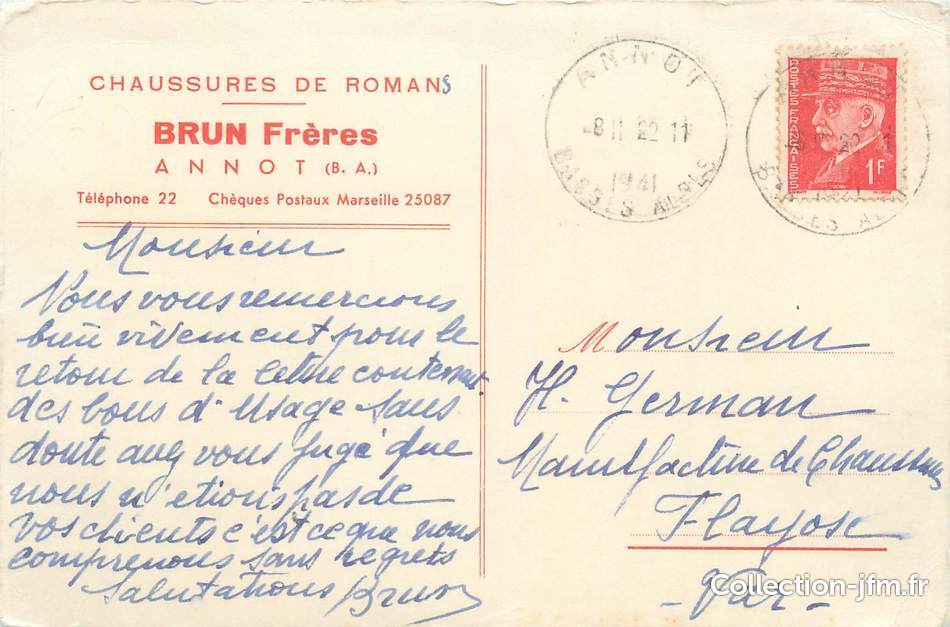 CHAUSSURES DE ROMANS
BRUN Frères
ANNOT (B. A.)
Téléphone 22 Chèques Postaux Marseille 25087
Monsieur
Nous vous remercions
bien vivement pour le
retour de la lettre contenant
des bons d'Usage sans
doute avez vous jugé que
nous n'etions pas de
vos clients c'est ce que nous
comprenons sans regrets
Salutations Brun
ANNOT
-8 II 22 11
1941
BASSES ALPES
POSTES FRANÇAISES
1F
Monsieur
H. German
Manufacture de Chaussures
Flayosc
- Var -
Collection-jfm.fr